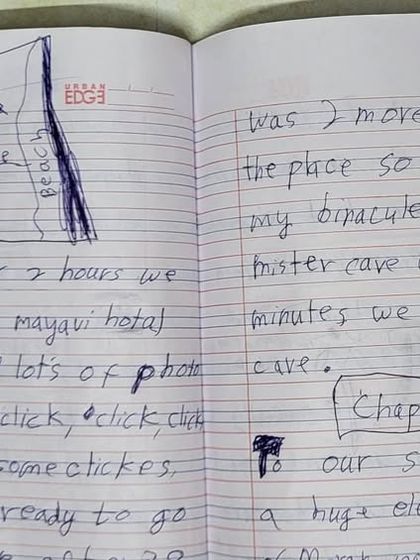 Beach
URBAN
EDGE
2 hours we
mayavi hotal
lot's of photo
click, click, click
some clickes,
ready to go
was 2 more
the place so
my binacule
mister cave
minutes we
cave.
Chap
To our s
a huge ele